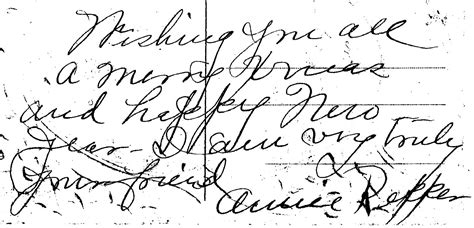 Wishing you all
a merry Xmas
and happy New
Year - I am very truly
Your friend
Annie Pepper